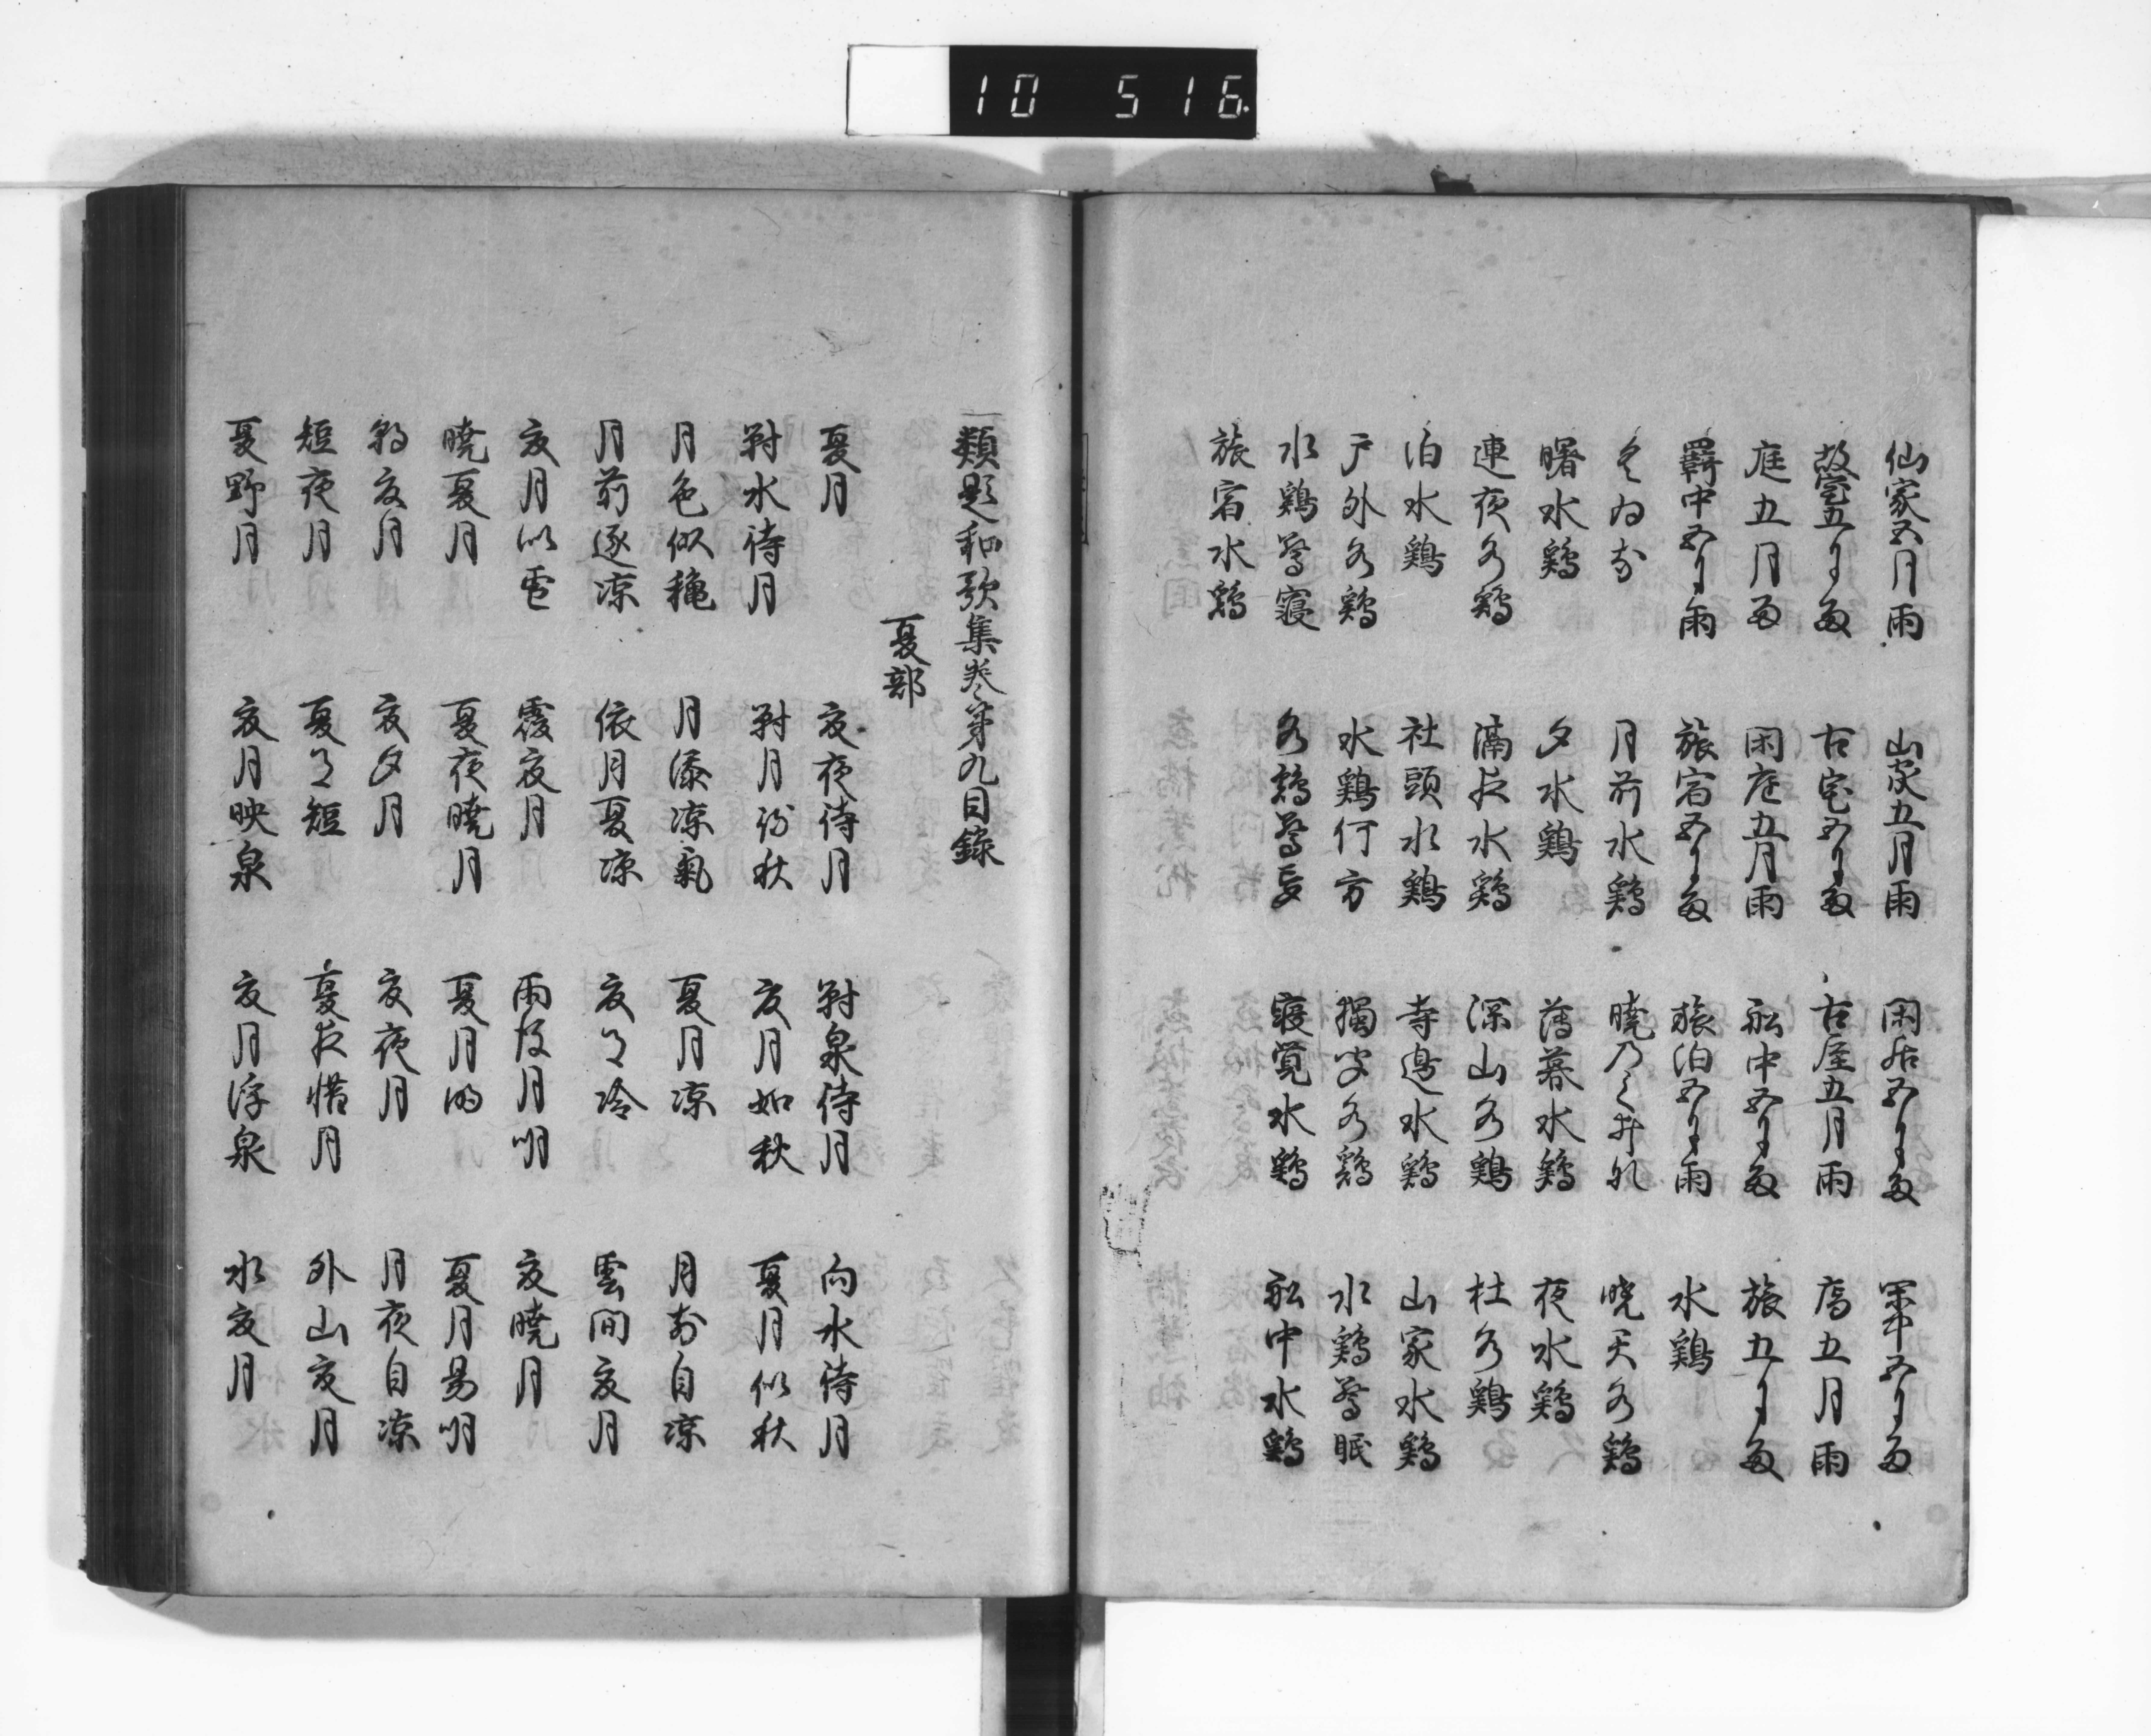 10 516.
仙家五月雨 山家五月雨 閑居五月雨 軍中五月雨
故宅五月雨 古宅五月雨 古屋五月雨 窓五月雨
庭五月雨 閑庭五月雨 船中五月雨 旅五月雨
羇中五月雨 旅宿五月雨 旅泊五月雨 水鶏
月前水鶏 暁天水鶏
曙水鶏 夕水鶏 薄暮水鶏 夜水鶏
連夜水鶏 満夜水鶏 深山水鶏 杜水鶏
泊水鶏 社頭水鶏 寺邊水鶏 山家水鶏
戸外水鶏 水鶏何方 獨聞水鶏 水鶏驚眠
水鶏驚寝 水鶏驚夢 寝覚水鶏 船中水鶏
旅宿水鶏
類題和歌集巻第九目録
夏部
夏月 夏夜待月 對泉待月 向水待月
對水待月 對月待秋 夏月如秋 夏月似秋
月色似穐 月添凉氣 夏月凉 月前自凉
月前逐凉 依月夏凉 夏月冷 雲間夏月
夏月似雪 霞夏月 雨後月明 夏暁月
暁夏月 夏夜暁月 夏月明 夏月易明
朝夏月 夏夕月 夏夜月 月夜自凉
短夜月 夏月短 夏夜惜月 外山夏月
夏野月 夏月映泉 夏月浮泉 水夏月